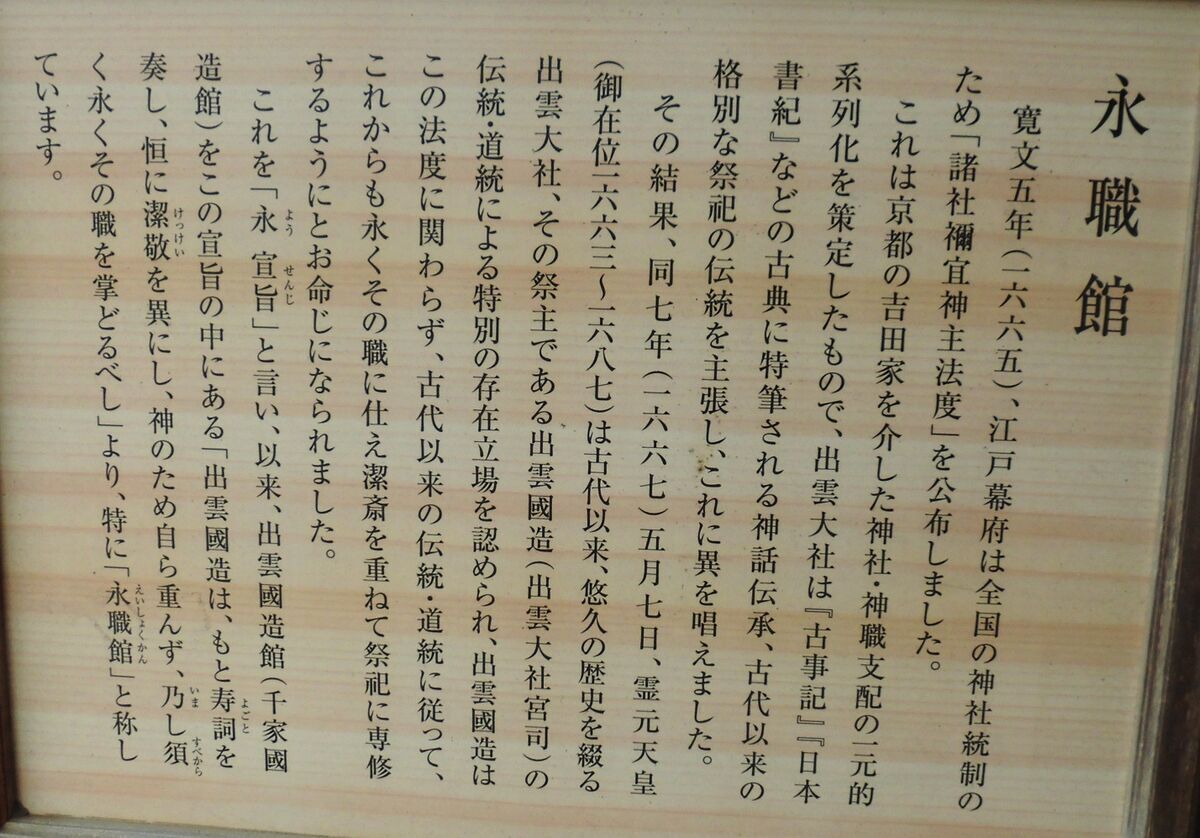 永職館
寛文五年(一六六五)、江戸幕府は全国の神社統制の
ため「諸社禰宜神主法度」を公布しました。
これは京都の吉田家を介した神社・神職支配の一元的
系列化を策定したもので、出雲大社は『古事記』『日本
書紀』などの古典に特筆される神話伝承、古代以来の
格別な祭祀の伝統を主張し、これに異を唱えました。
その結果、同七年(一六六七)五月七日、霊元天皇
(御在位一六六三〜一六八七)は古代以来、悠久の歴史を綴る
出雲大社、その祭主である出雲國造(出雲大社宮司)の
伝統・道統による特別の存在立場を認められ、出雲國造は
この法度に関わらず、古代以来の伝統・道統に従って、
これからも永くその職に仕え潔斎を重ねて祭祀に専修
するようにとお命じになられました。
これを「永宣旨」と言い、以来、出雲國造館(千家國
造館)をこの宣旨の中にある「出雲國造は、もと寿詞を
奏し、恒に潔敬を異にし、神のため自ら重んず、乃し須
く永くその職を掌どるべし」より、特に「永職館」と称し
ています。